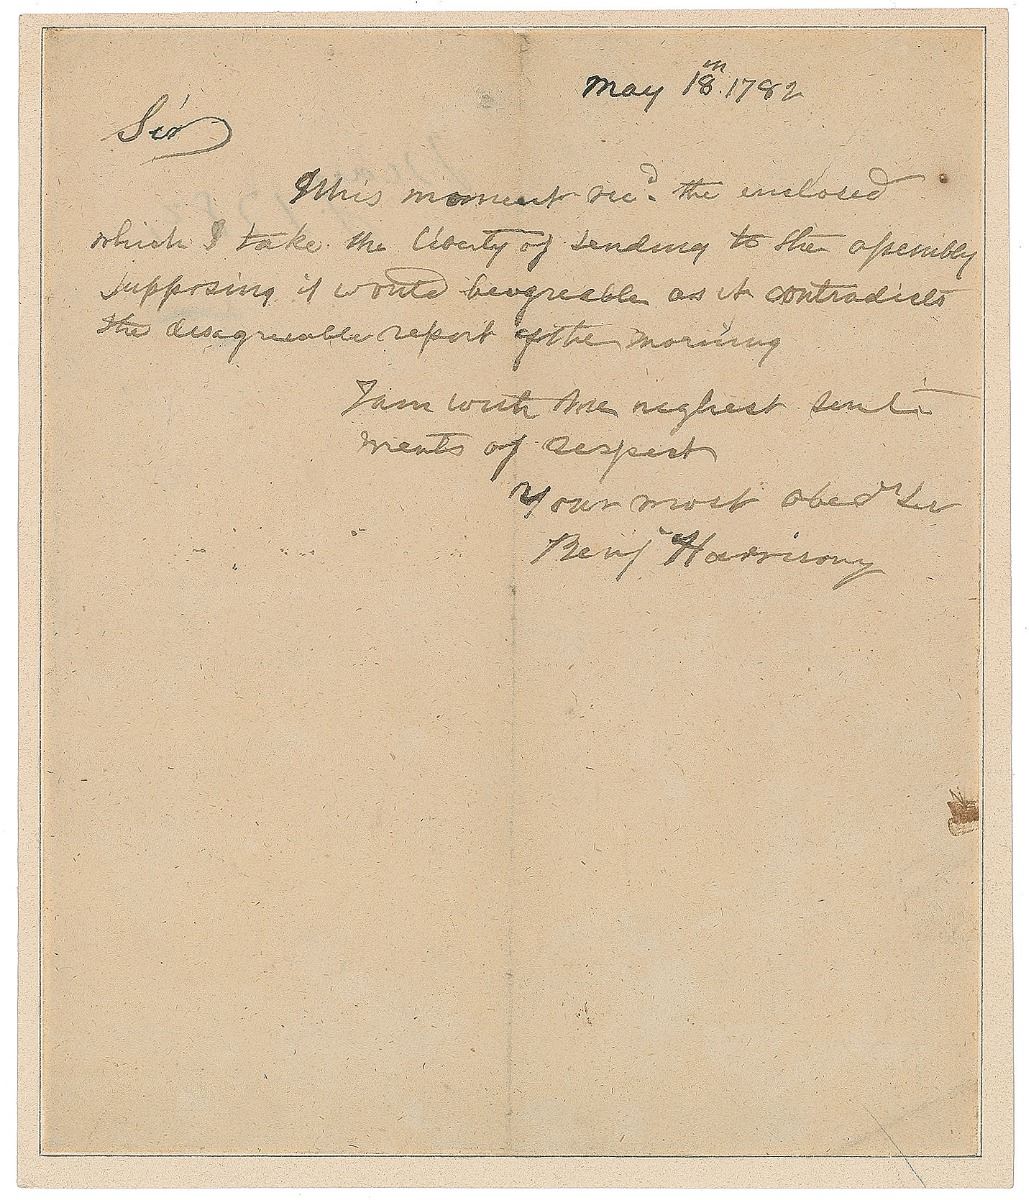 May 18th 1782
Sir
I this moment recd. the enclosed
which I take the liberty of sending to the assembly
supposing it would be agreable as it contradicts
the disagreeable report of the morning
I am with the highest senti
ments of respect
Your most obedt Ser
Benj Harrison